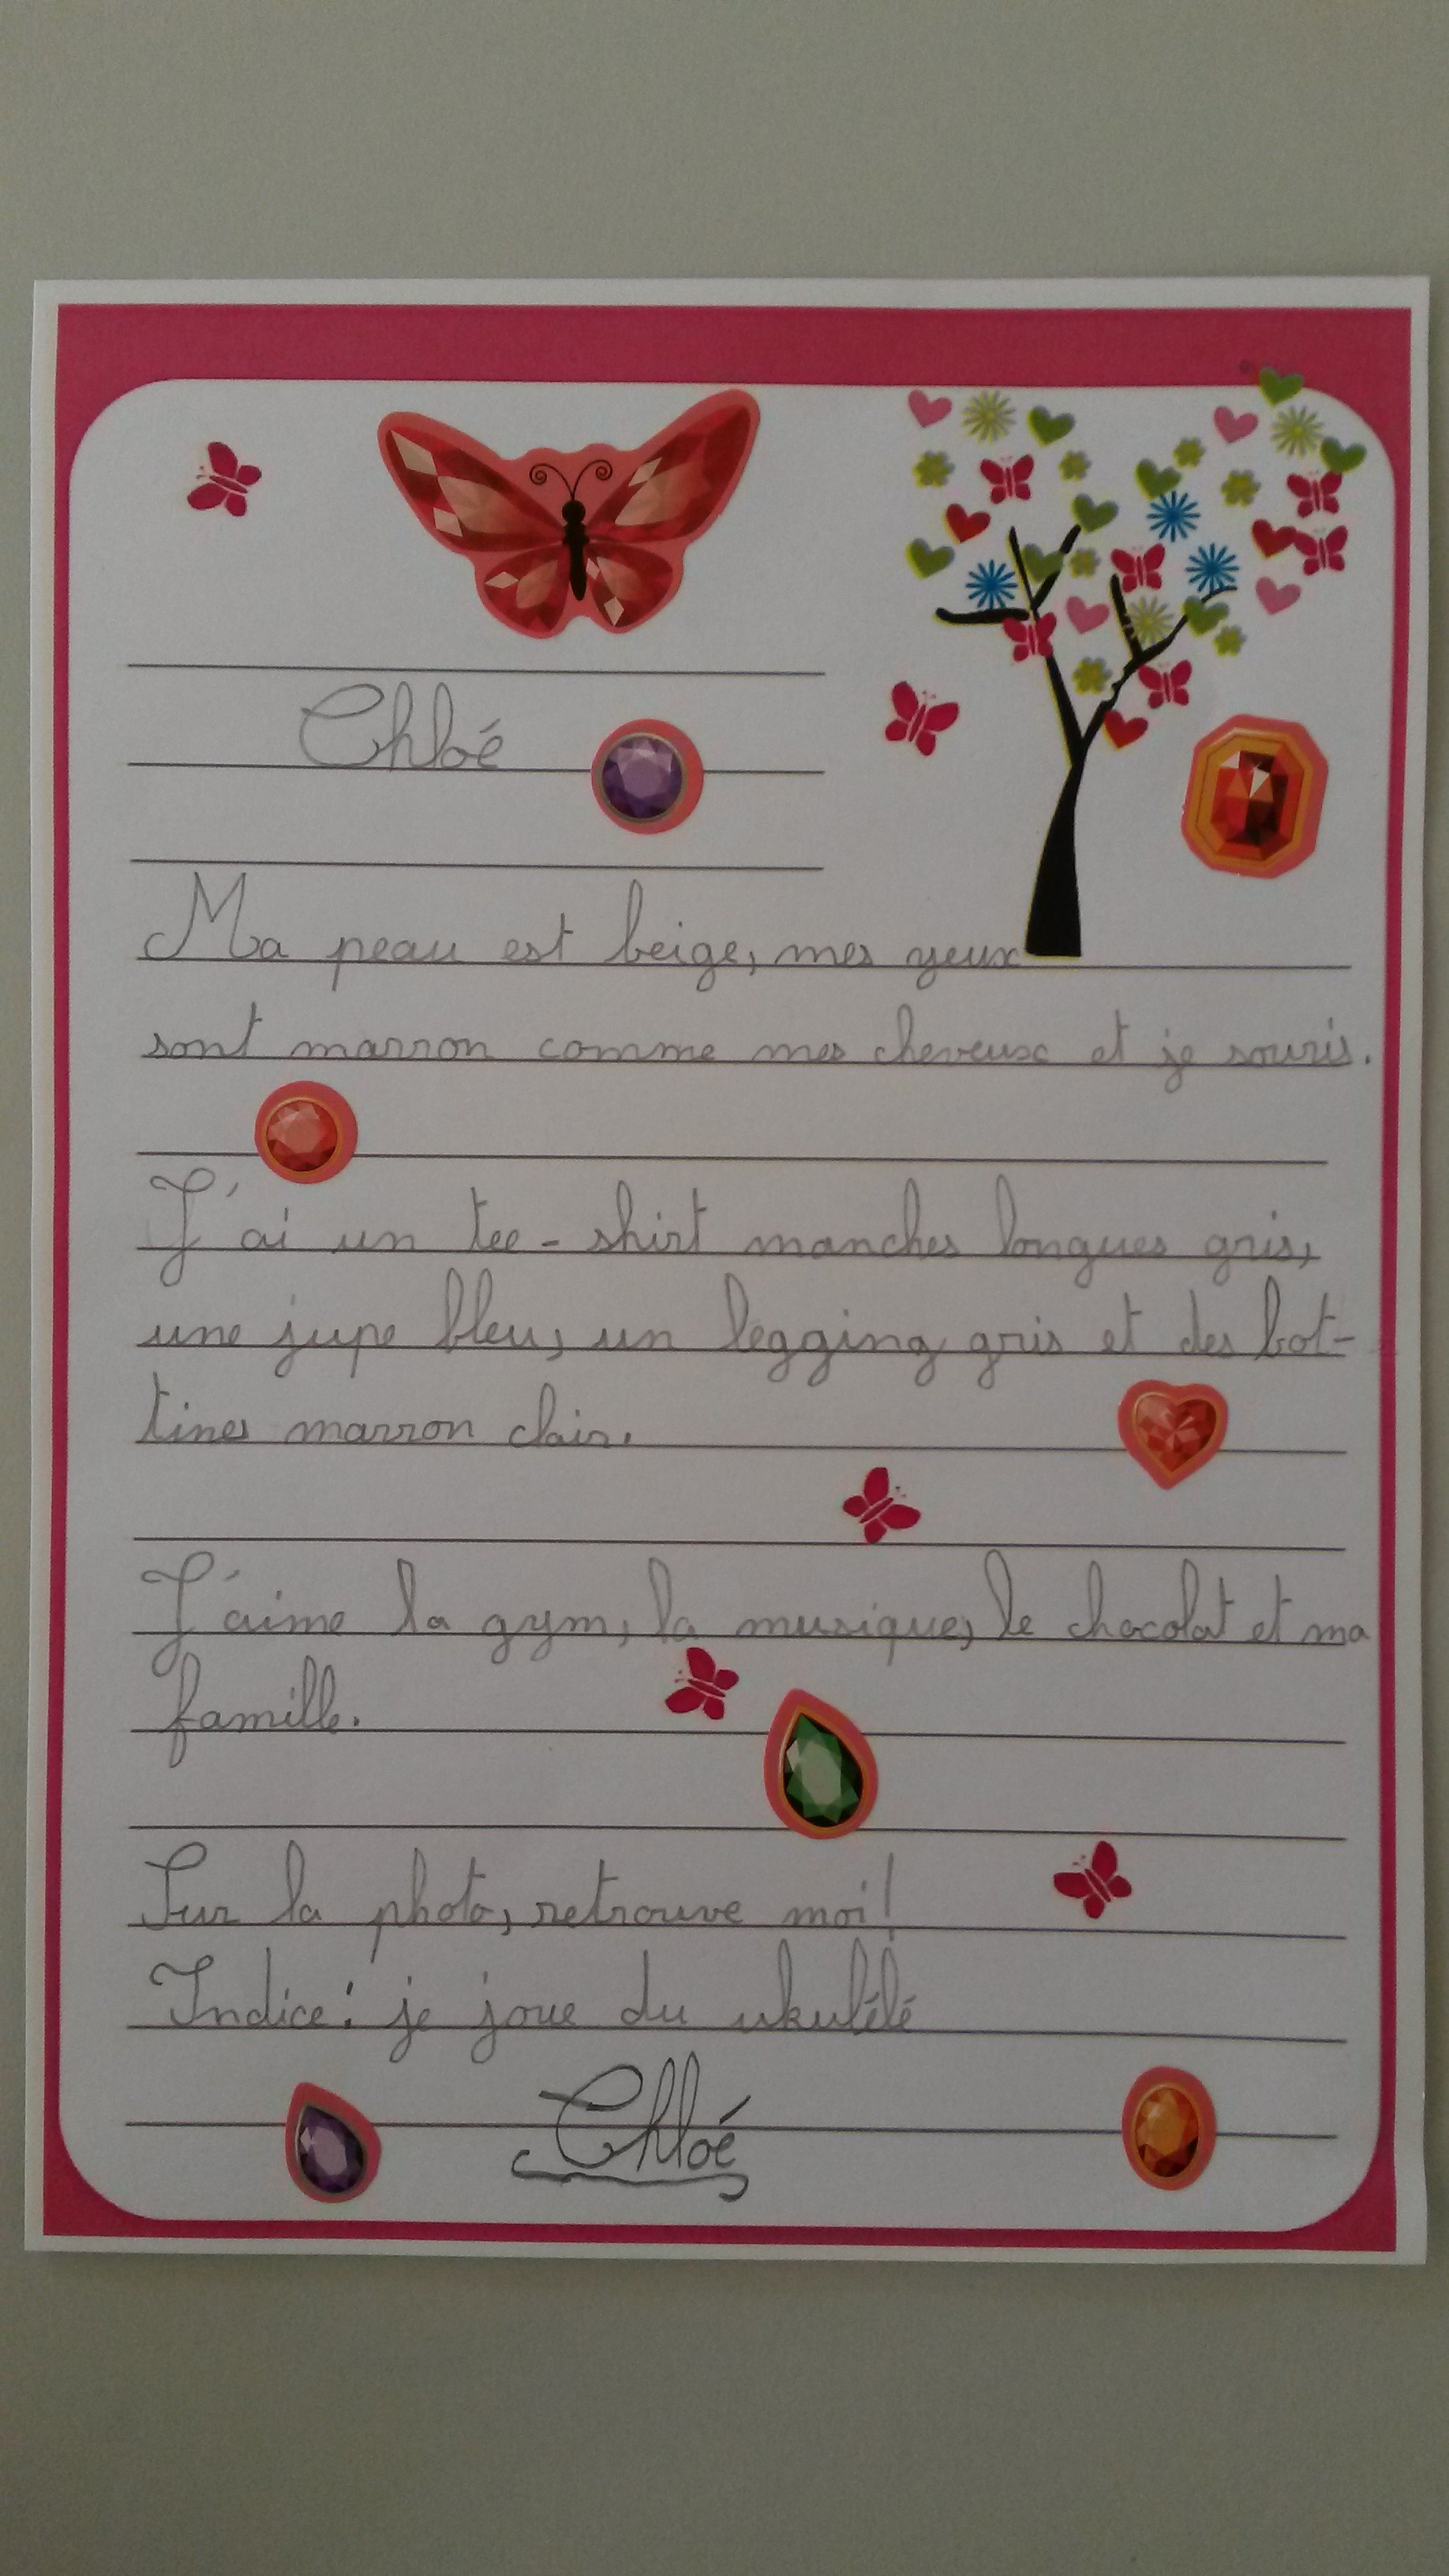 Chloé
Ma peau est beige, mes yeux
sont marron comme mes cheveux et je souris.
J'ai un tee-shirt manches longues gris,
une jupe bleu, un legging gris et des bot-
tines marron clair.
J'aime la gym, la musique, le chocolat et ma
famille.
Sur la photo, retrouve moi!
Indice: je joue du ukulélé
Chloé